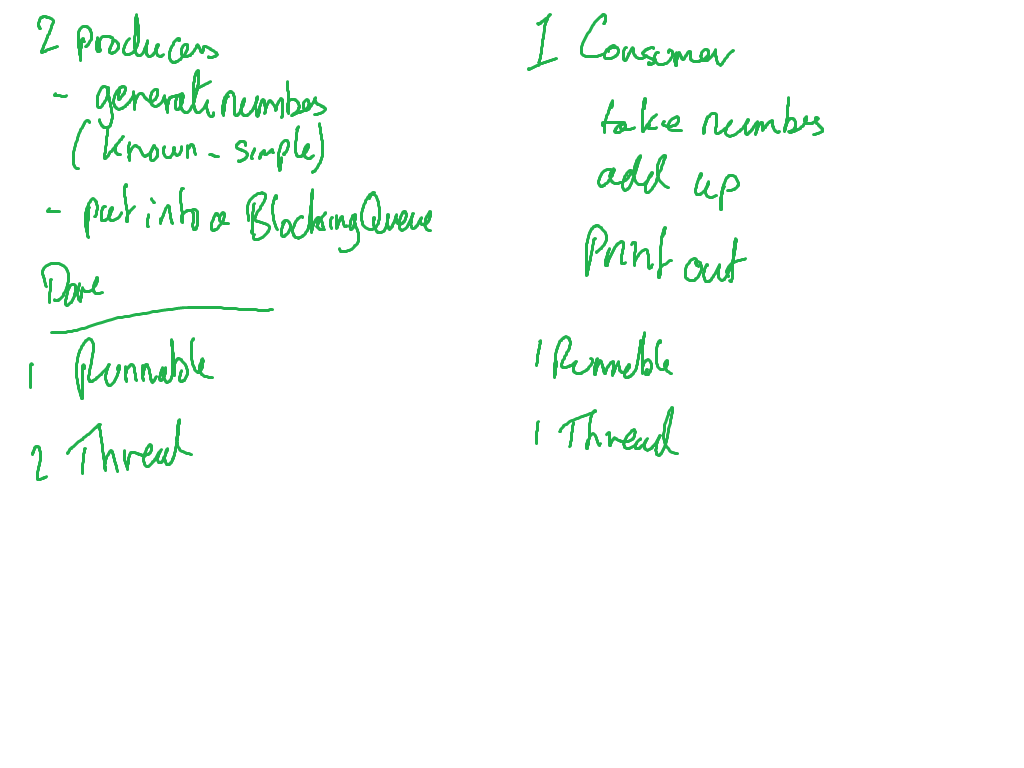 2 Producers
- generate numbers
(known - simple)
- put into a BlockingQueue
Done
1 Runnable
2 Thread
1 Consumer
take numbers
add up
Print out
1 Runnable
1 Thread